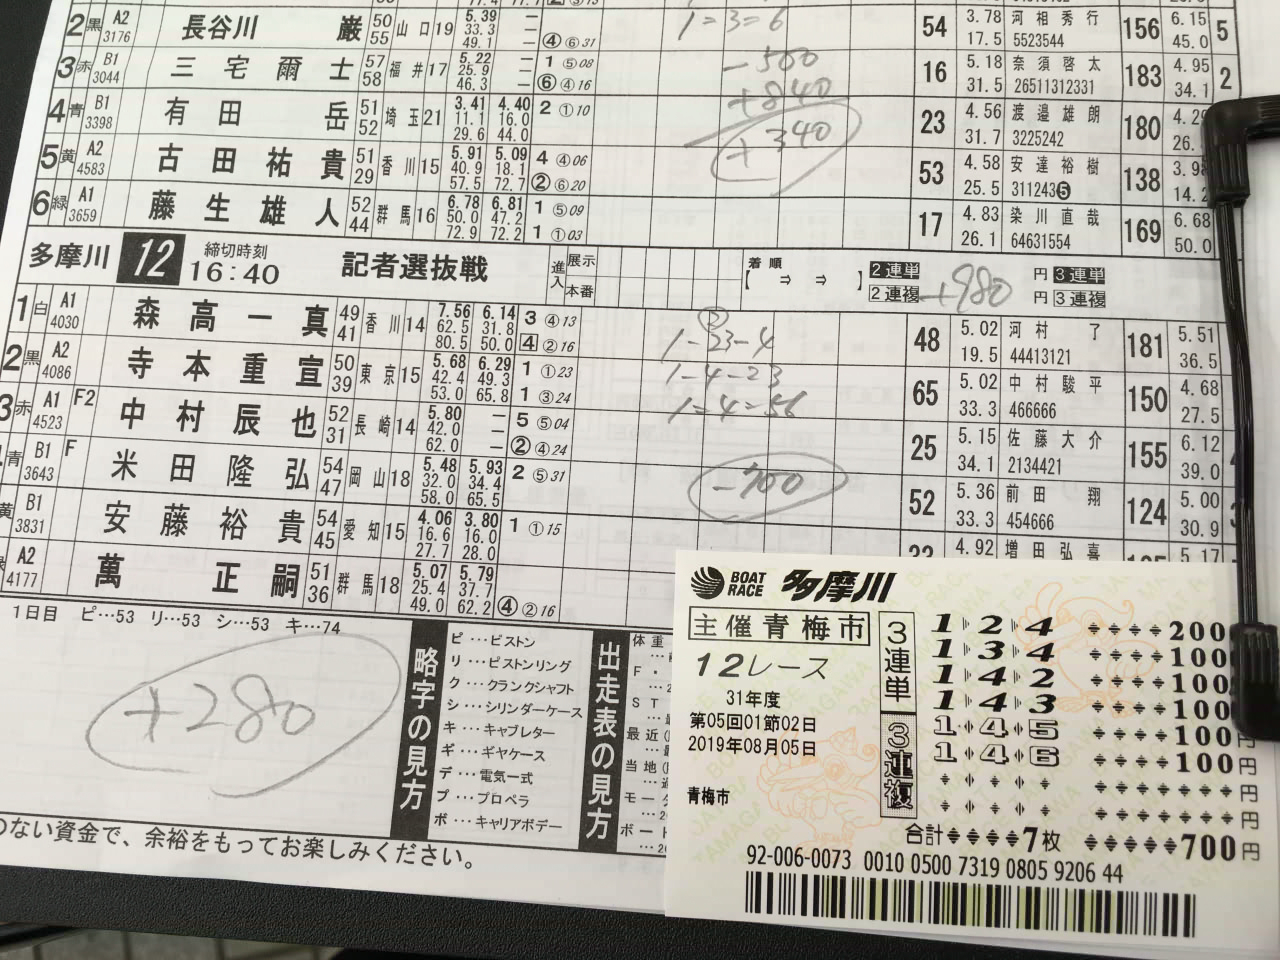 2 黒 A2 3176 長谷川 巌 50 55 山口 19 5.39 33.3 49.1 ④ ⑥ 31 1=3=6 54 3.78 17.5 河相秀行 5523544 156 6.15 45.0 5
3 赤 B1 3044 三宅爾士 57 58 福井 17 5.22 25.9 46.3 1 ⑤ 08 ⑥ ④ 16 -500 16 5.18 31.5 奈須啓太 26511312331 183 4.95 34.1 2
4 青 B1 3398 有田 岳 51 52 埼玉 21 3.41 11.1 29.6 4.40 16.0 44.0 2 ① 10 +840 23 4.56 31.7 渡邉雄朗 3225242 180
+340
5 黄 A2 4583 古田祐貴 51 29 香川 15 5.91 40.9 57.5 5.09 18.1 72.7 4 ④ 06 ② ⑥ 20 53 4.58 25.5 安達裕樹 311243❺ 138 14.2
6 緑 A1 3659 藤生雄人 52 44 群馬 16 6.78 50.0 72.9 6.81 47.2 72.2 1 ⑤ 09 1 ① 03 17 4.83 26.1 染川直哉 64631554 169 6.68 50.0
多摩川 12 締切時刻 16:40 記者選抜戦 進入 展示 本番 着順 【 ⇒ ⇒ 】 2連単 2連複 +980 円 3連単 円 3連複
1 白 A1 4030 森高一真 49 41 香川 14 7.56 62.5 80.5 6.14 31.8 50.0 3 ④ 13 4 ② 16 1-23-4 48 5.02 19.5 河村 了 44413121 181 5.51 36.5
2 黒 A2 4086 寺本重宣 50 39 東京 15 5.68 42.4 53.0 6.29 49.3 65.8 1 ① 23 1 ③ 24 1-4-23 65 5.02 33.3 中村駿平 466666 150 4.68 27.5
3 赤 A1 4523 F2 中村辰也 52 31 長崎 14 5.80 42.0 62.0 5 ⑤ 04 ② ④ 24 1=4=56 25 5.15 34.1 佐藤大介 2134421 155 6.12 39.0
青 B1 3643 F 米田隆弘 54 47 岡山 18 5.48 32.0 58.0 5.93 34.4 65.5 2 ⑤ 31 -700 52 5.36 33.3 前田 翔 454666 124 5.00 30.9
黄 B1 3831 安藤裕貴 54 45 愛知 15 4.06 16.6 27.7 3.80 16.0 28.0 1 ① 15 4.92 増田弘喜 5.17
A2 4177 萬 正嗣 51 36 群馬 18 5.07 25.4 49.0 5.79 37.7 62.2 ④ ② 16
1日目 ピ…53 リ…53 シ…53 キ…74
+280
略字の見方
ピ…ピストン
リ…ピストンリング
ク…クランクシャフト
シ…シリンダーケース
キ…キャブレター
ギ…ギヤケース
デ…電気一式
プ…プロペラ
ボ…キャリアボデー
出走表の見方
体重
F・
ST
最近
当地
モー
ボート
のない資金で、余裕をもってお楽しみください。
BOAT RACE 多摩川
主催青梅市
12レース
31年度
第05回01節02日
2019年08月05日
青梅市
3連単
1 2 4 200
1 3 4 100
1 4 2 100
1 4 3 100
3連複
1 4 5 100円
1 4 6 100円
円
円
合計 7枚 700円
92-006-0073 0010 0500 7319 0805 9206 44